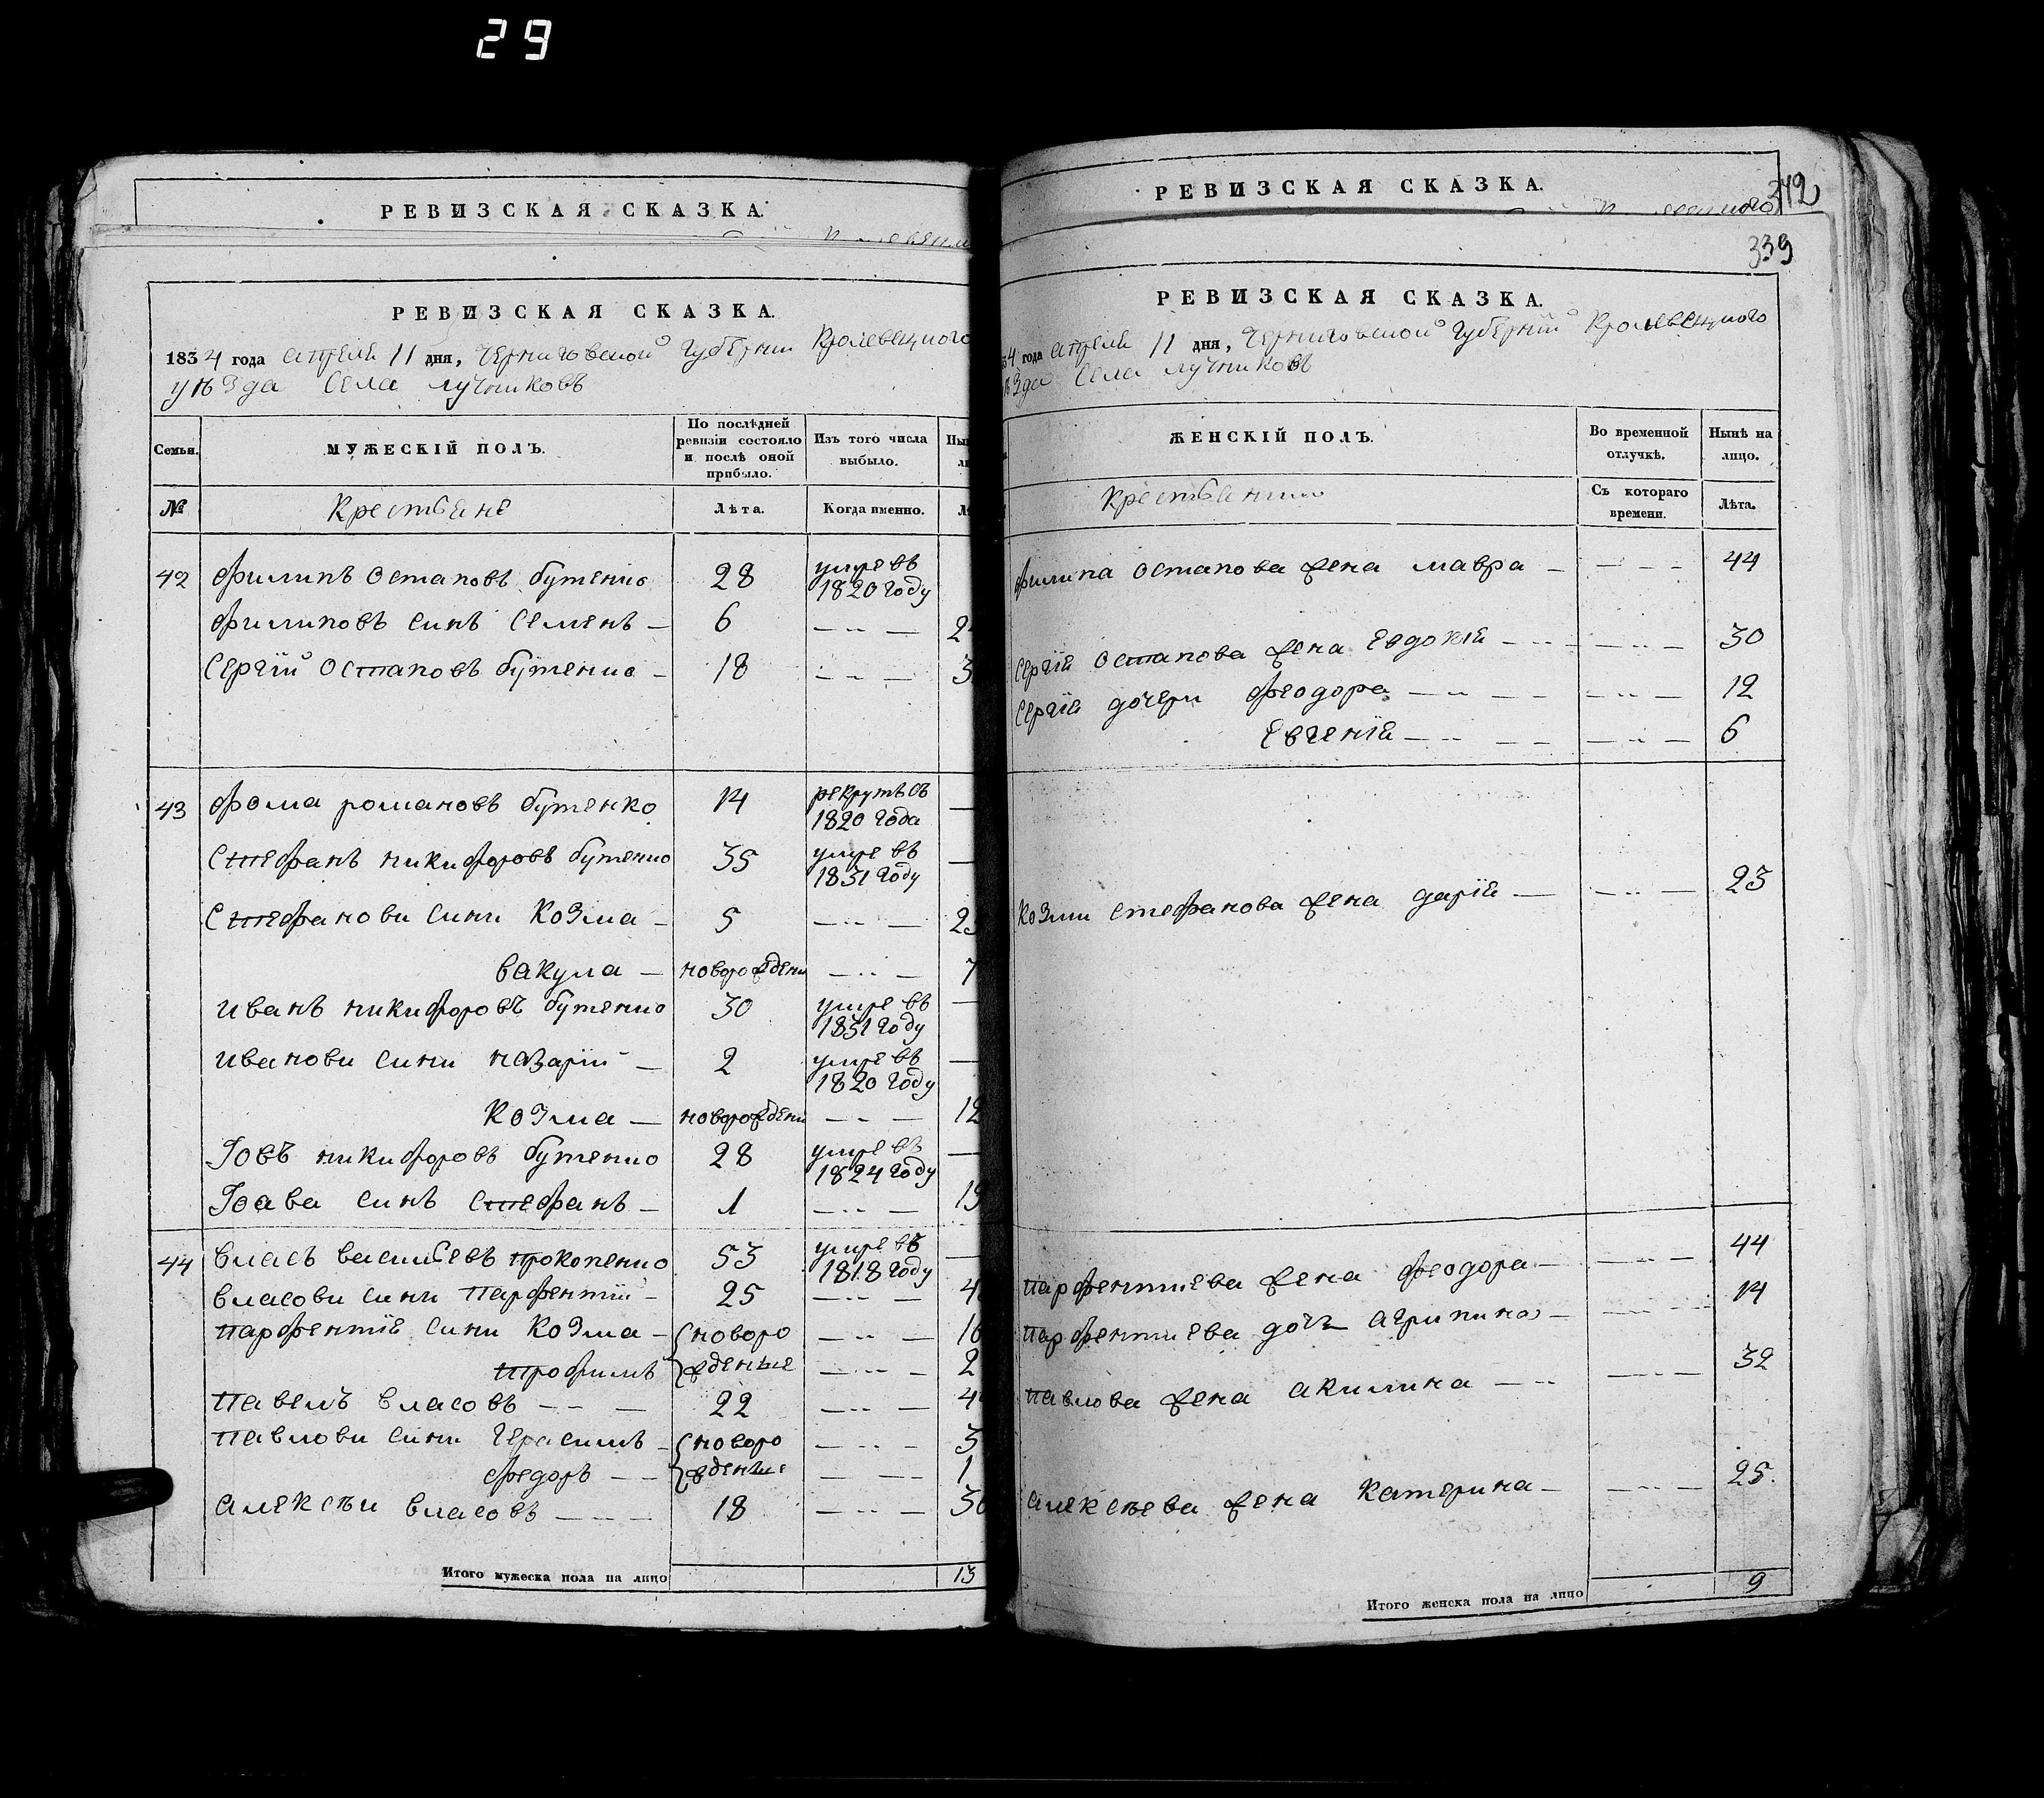 29
РЕВИЗСКАЯ СКАЗКА.
РЕВИЗСКАЯ СКАЗКА.
1834 года апреля 11 дня, Черниговской Губернии Кролевецкого
уѣзда Села Лучниковъ
Семьи.
МУЖЕСКІЙ ПОЛЪ.
По послѣдней
ревизіи состояло
и послѣ оной
прибыло.
Изъ того числа
выбыло.
№
Крестьяне
Лѣта.
Когда именно.
42 Филипъ Остаповъ бутенко 28 умре въ
1820 году
Филиповъ синъ Семенъ 6
Сергій Остаповъ бутенко 18
43 Фома романовъ бутенко 14 рекрутъ съ
1820 года
Стефанъ никифоровъ бутенко 35 умре въ
1831 году
Стефанови сини Козма 5
вакула новорожденъ 7
иванъ никифоровъ бутенко 30 умре въ
1831 году
иванови сини назарій 2 умре въ
1820 году
Козма новорожденъ 12
Іовъ никифоровъ бутенко 28 умре въ
1824 году
Іова синъ Стефанъ 1 19
44 власъ васильевъ прокопенко 53 умре въ
1818 году
власови сини парфентій 25
парфентіе сини Козма новоро
трофимъ жденые
павелъ власовъ 22
павлови сини герасимъ новоро
федоръ жденые
алексѣи власовъ 18
Итого мужеска пола на лицо 13
РЕВИЗСКАЯ СКАЗКА.
342
339
РЕВИЗСКАЯ СКАЗКА.
34 года апреля 11 дня, Черниговской Губерніи Кролевецкого
ѣзда Села Лучниковъ
ЖЕНСКІЙ ПОЛЪ.
Во временной
отлучкѣ.
Нынѣ на
лицо.
Съ котораго
времени.
Лѣта.
филипа остапова жена мавра 44
Сергія остапова жена Евдокія 30
Сергія дочери феодора 12
Евгенія 6
Козми стефанова жена дарія 23
парфентиева жена феодора 44
парфентиева дочь агрипина 14
павлова жена акилина 32
алексѣева жена катерина 25
Итого женска пола на лицо 9